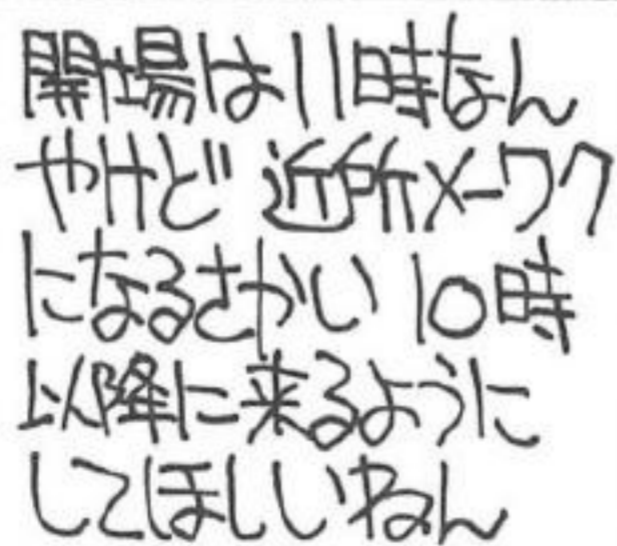 開場は11時なん
やけど 近所メーワク
になるさかい 10時
以降に来るように
してほしいねん